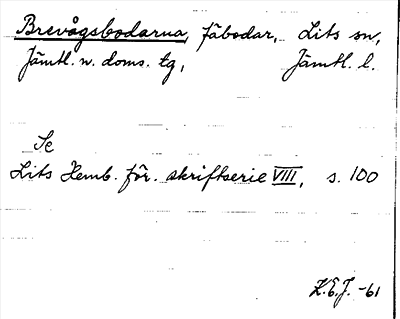 Brevågsbodarna, fäbodar, Lits sn,
Jämtl. n. doms. tg, Jämtl. l.
Se
Lits Hemb. för. skriftserie VIII, s. 100
K.E.J. -61